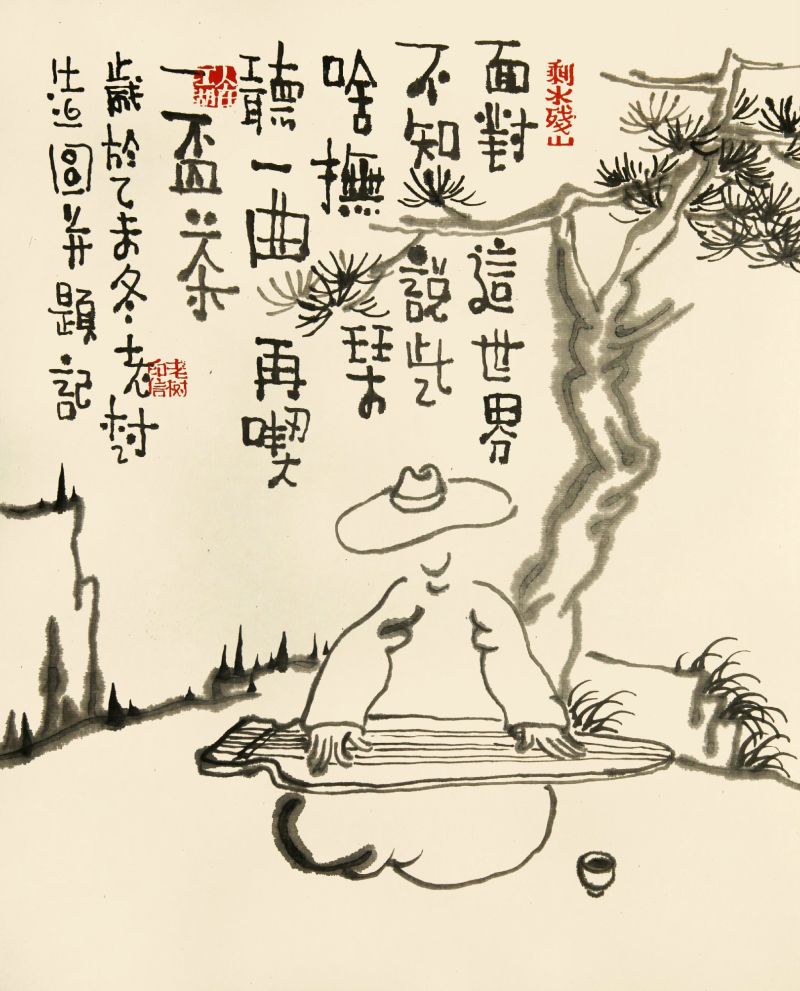 剩水殘山
面對這世界
不知說些
啥撫琴
聽一曲再喫
一盃茶
人在江湖
歲於乙未冬老树
老树印信
圖并題記